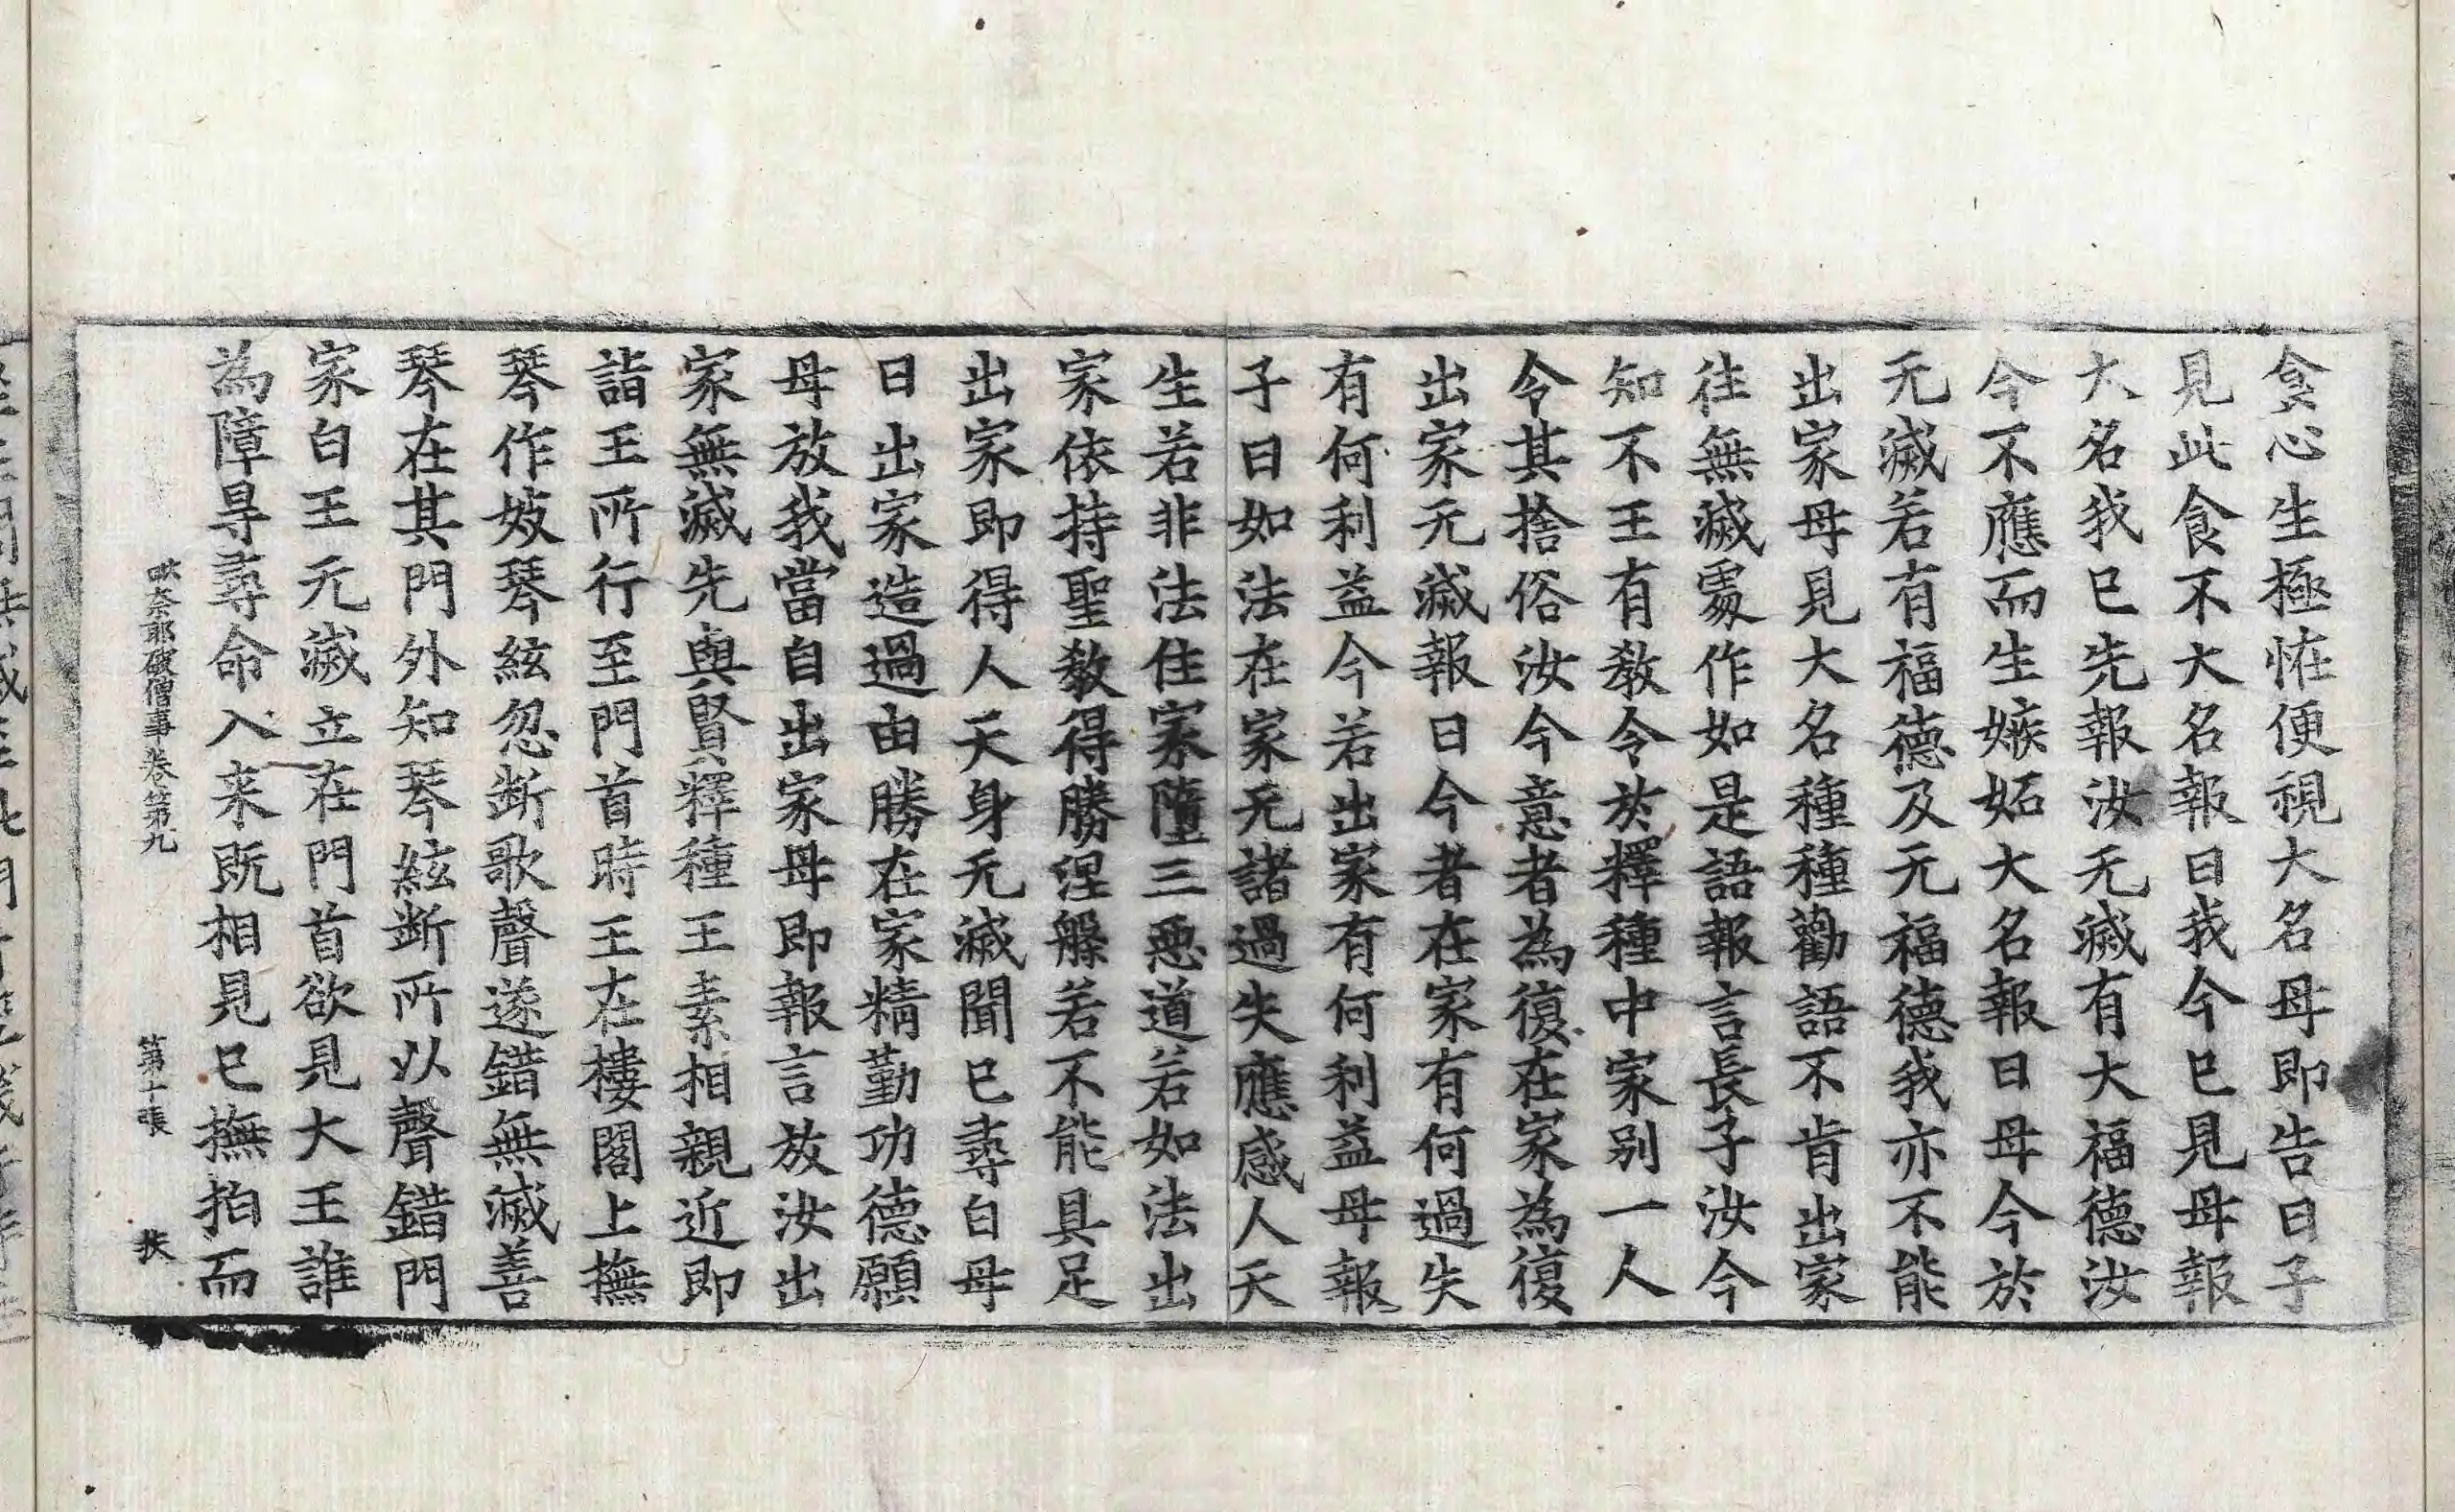 貪心生極恠便視大名母即告曰子
見此食不大名報曰我今已見母報
大名我已先報汝无滅有大福德汝
今不應而生嫉妬大名報曰母今於
无滅若有福德及无福德我亦不能
出家母見大名種種勸語不肯出家
往無滅處作如是語報言長子汝今
知不王有教令於釋種中家別一人
令其捨俗汝今意者為復在家為復
出家无滅報曰今者在家有何過失
有何利益今若出家有何利益母報
子曰如法在家无諸過失應感人天
生若非法住家墮三惡道若如法出
家依持聖教得勝涅槃若不能具足
出家即得人天身无滅聞已尋白母
曰出家造過由勝在家精勤功德願
母放我當自出家母即報言放汝出
家無滅先與賢釋種王素相親近即
詣王所行至門首時王在樓閣上撫
琴作妓琴絃忽断歌聲遂錯無滅善
琴在其門外知琴絃断所以聲錯門
家白王无滅立在門首欲見大王誰
為障㝵尋命入来既相見已撫拍而
奈耶破僧事卷第九 第十張 狄